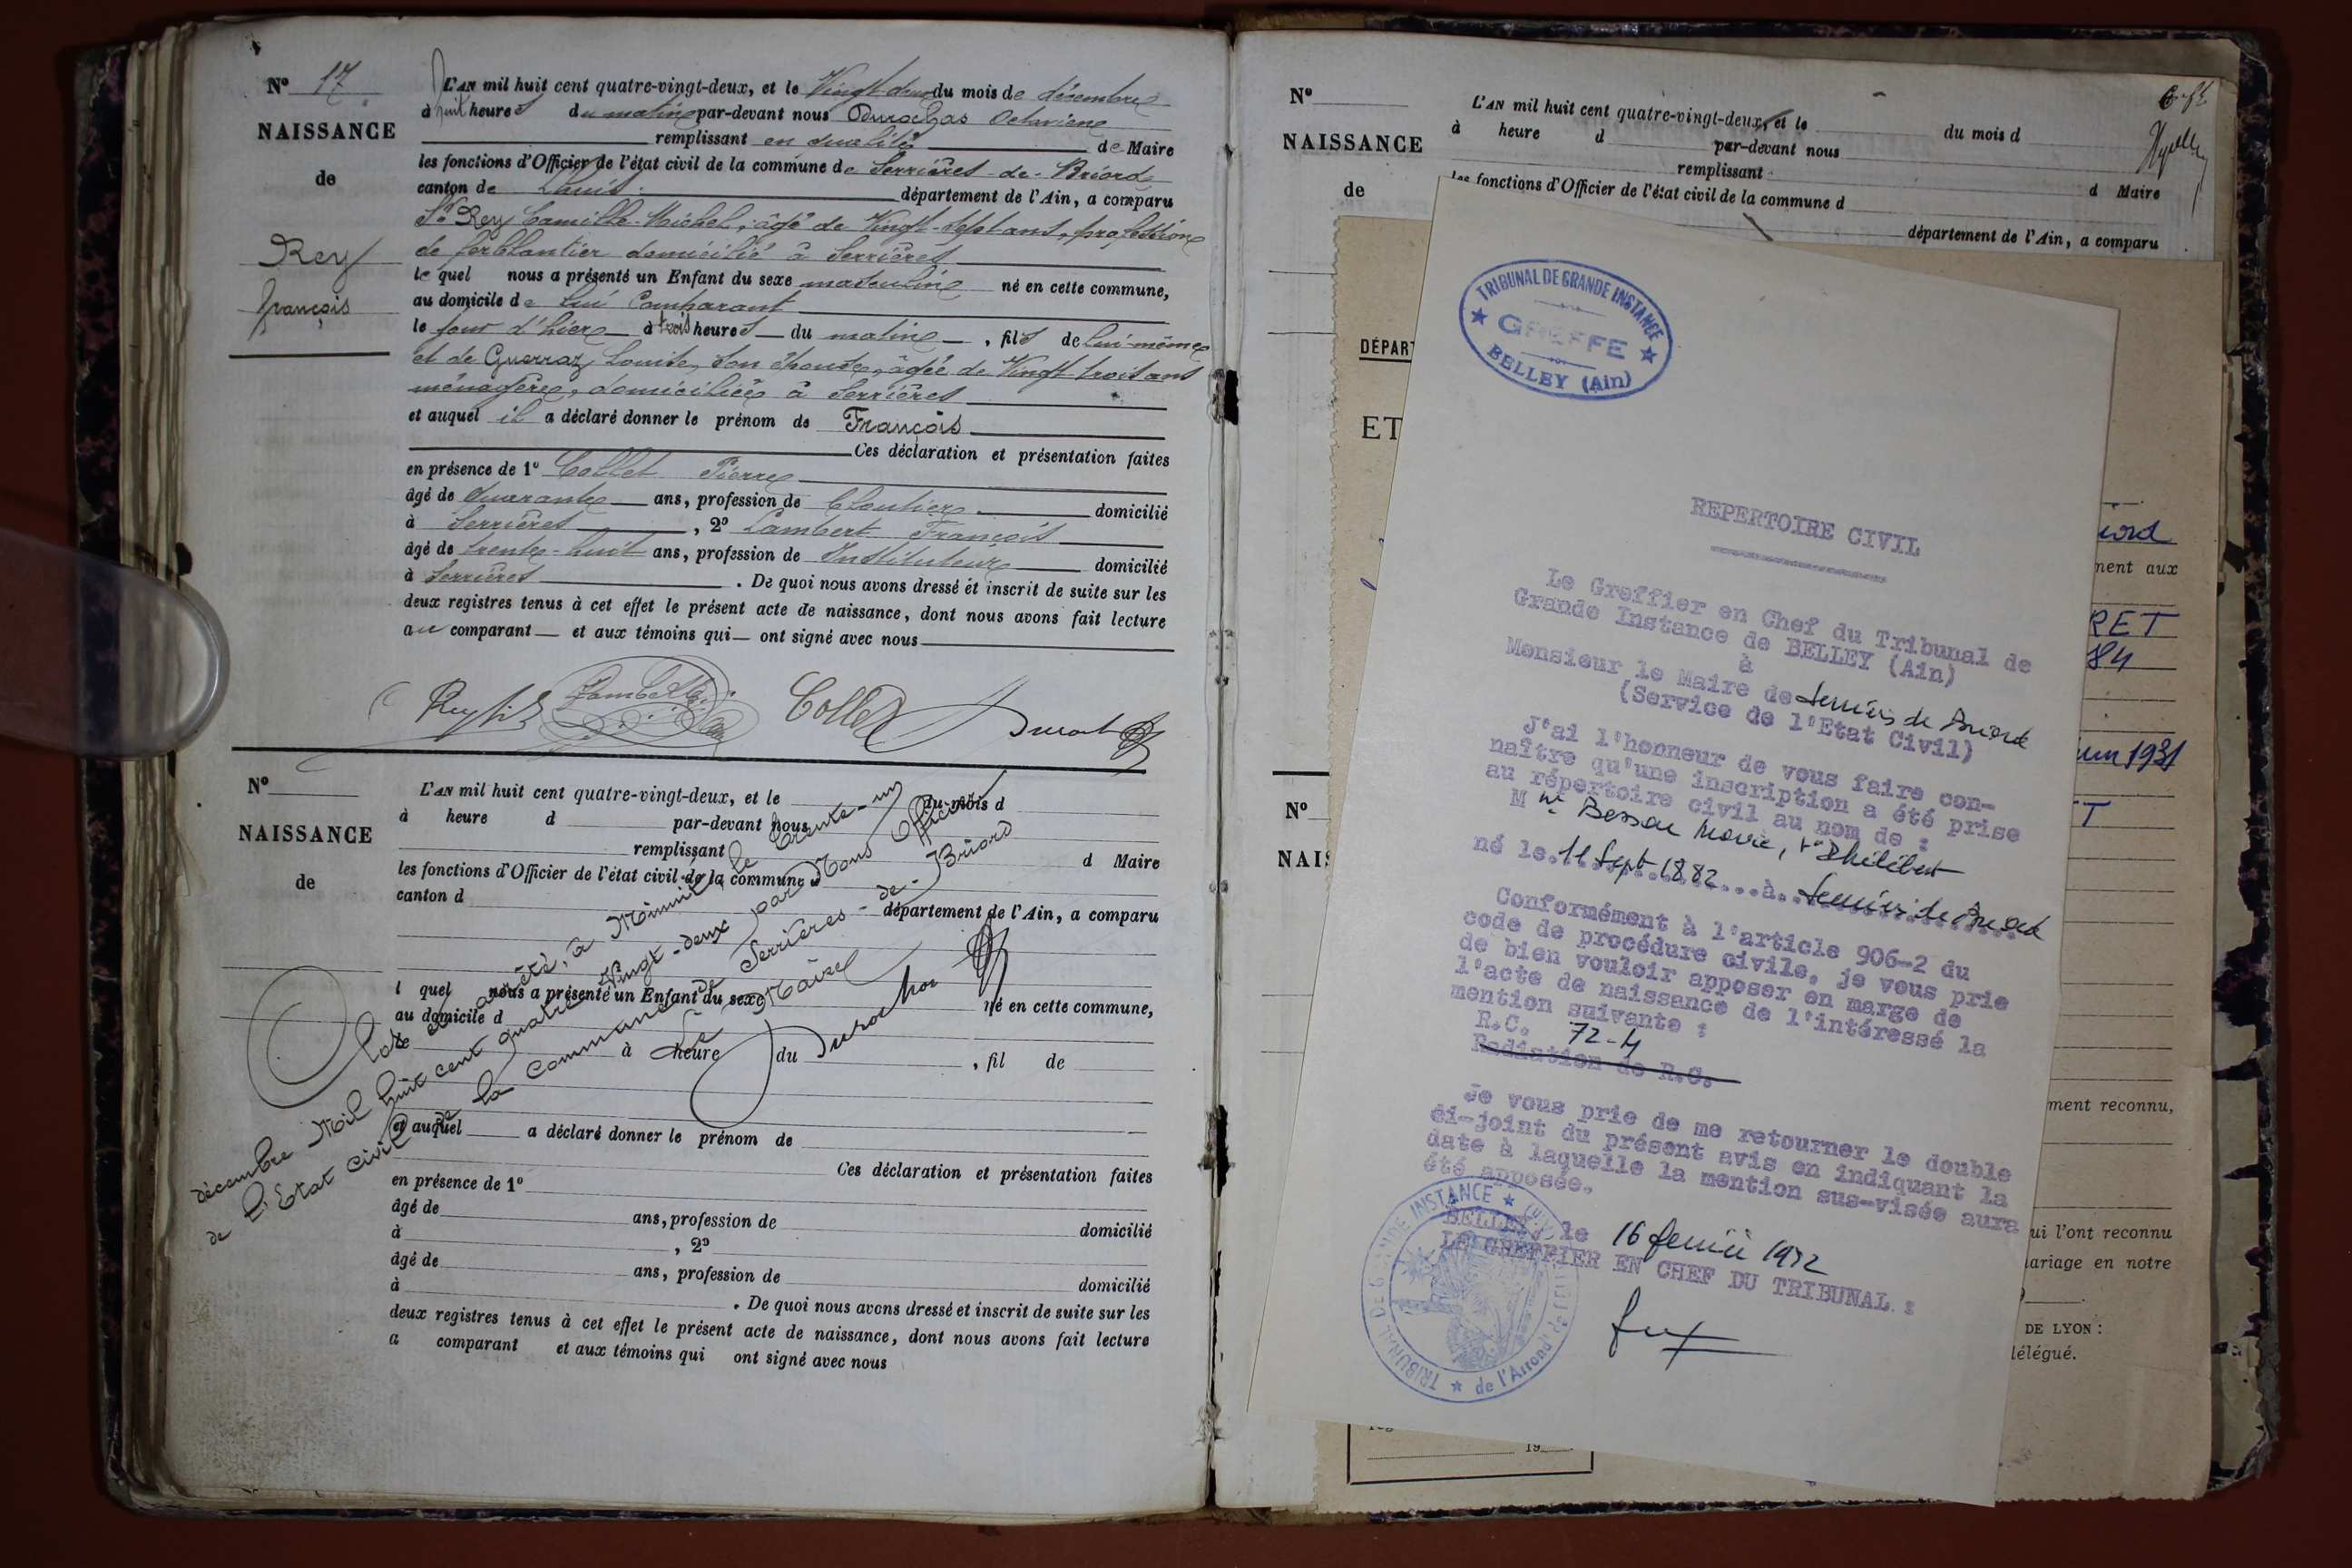 N° 17
NAISSANCE
de
Rey
françois
L'AN mil huit cent quatre-vingt-deux, et le Vingt deux du mois de décembre
à huit heures du matin par-devant nous Durochas Octavien
remplissant en qualité de Maire
les fonctions d'Officier de l'état civil de la commune de Serrières-de-Briord
canton de Lhuis département de l'Ain, a comparu
Sr Rey Camille-Michel, âgé de Vingt-sept ans, profession
de ferblantier domicilié à Serrières
lequel nous a présenté un Enfant du sexe masculin né en cette commune,
au domicile de lui Comparant
le jour d'hier à trois heures du matin, fils de lui-même
et de Guerraz Louise, son épouse, âgée de Vingt trois ans
ménagère, domiciliée à Serrières
et auquel il a déclaré donner le prénom de François
Ces déclaration et présentation faites
en présence de 1° Collet Pierre
âgé de quarante ans, profession de Cloutier domicilié
à Serrières, 2° Lambert François
âgé de trente-huit ans, profession de Instituteur domicilié
à Serrières. De quoi nous avons dressé et inscrit de suite sur les
deux registres tenus à cet effet le présent acte de naissance, dont nous avons fait lecture
au comparant et aux témoins qui ont signé avec nous
Rey fils Lambert Collet
N°
NAISSANCE
de
L'AN mil huit cent quatre-vingt-deux, et le du mois d
à heure d par-devant nous
remplissant d Maire
les fonctions d'Officier de l'état civil de la commune d
canton d département de l'Ain, a comparu
l quel nous a présenté un Enfant du sexe né en cette commune,
au domicile d
le à heure du , fil de
et auquel a déclaré donner le prénom de
Ces déclaration et présentation faites
en présence de 1°
âgé de ans, profession de domicilié
à , 2°
âgé de ans, profession de domicilié
à . De quoi nous avons dressé et inscrit de suite sur les
deux registres tenus à cet effet le présent acte de naissance, dont nous avons fait lecture
a comparant et aux témoins qui ont signé avec nous
Clos et arrêté, à Minuit, le trente-un
décembre Mil huit cent quatre Vingt-deux par Nous Officier
de l'Etat civil de la Commune de Serrières-de-Briord
Le Maire
N°
NAISSANCE
de
L'AN mil huit cent quatre-vingt-deux, et le du mois d
à heure d par-devant nous
remplissant d Maire
les fonctions d'Officier de l'état civil de la commune d
département de l'Ain, a comparu
N°
NAIS
DÉPART
ET
TRIBUNAL DE GRANDE INSTANCE
GREFFE
BELLEY (Ain)
REPERTOIRE CIVIL
Le Greffier en Chef du Tribunal de
Grande Instance de BELLEY (Ain)
à
Monsieur le Maire de Serrières de Briord
(Service de l'Etat Civil)
J'ai l'honneur de vous faire con-
naître qu'une inscription a été prise
au répertoire civil au nom de :
M me Besson Marie, Ve Philibert
né le 11 Sept 1882 à Serrières de Briord
Conformément à l'article 906-2 du
code de procédure civile, je vous prie
de bien vouloir apposer en marge de
l'acte de naissance de l'intéressé la
mention suivante :
R.C. 72-4
Radiation de R.C.
Je vous prie de me retourner le double
ci-joint du présent avis en indiquant la
date à laquelle la mention sus-visée aura
été apposée.
BELLEY, le 16 février 1972
LE GREFFIER EN CHEF DU TRIBUNAL :
iord
ment aux
RET
84
juin 1931
T
ment reconnu,
ui l'ont reconnu
ariage en notre
DE LYON :
élégué.
19